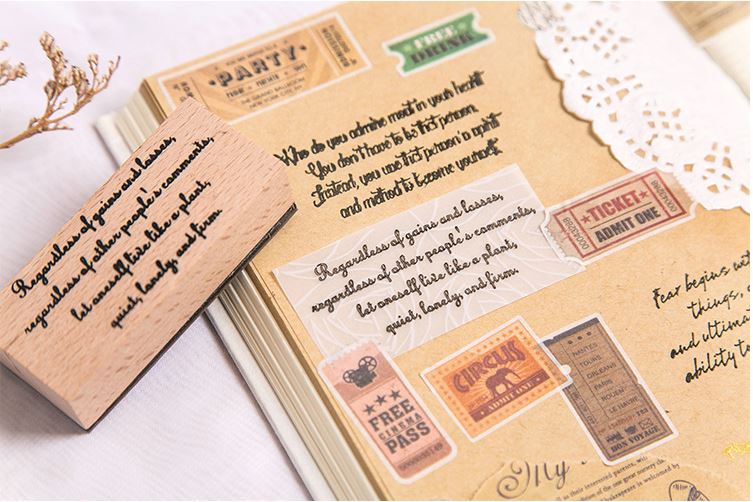 PARTY
NEW YORK CITY, NY
FREE
DRINK
Who do you admire most in your heart?
You don't have to be that person.
Instead, you use that person's spirit
and method to become yourself.
Regardless of gains and losses,
regardless of other people's comments,
let oneself live like a plant,
quiet, lonely, and firm.
Regardless of gains and losses,
regardless of other people's comments,
let oneself live like a plant,
quiet, lonely, and firm.
TICKET
ADMIT ONE
00045288
00045288
Fear begins with
things,
and ultima
ability to
CIRCUS
ADMIT ONE
FREE
CINEMA
PASS
NANTES
TOURS
ORLEANS
PARIS
ROUEN
LE HAVRE
BON VOYAGE
My